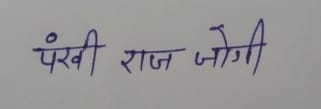 पंखी राज जोगी